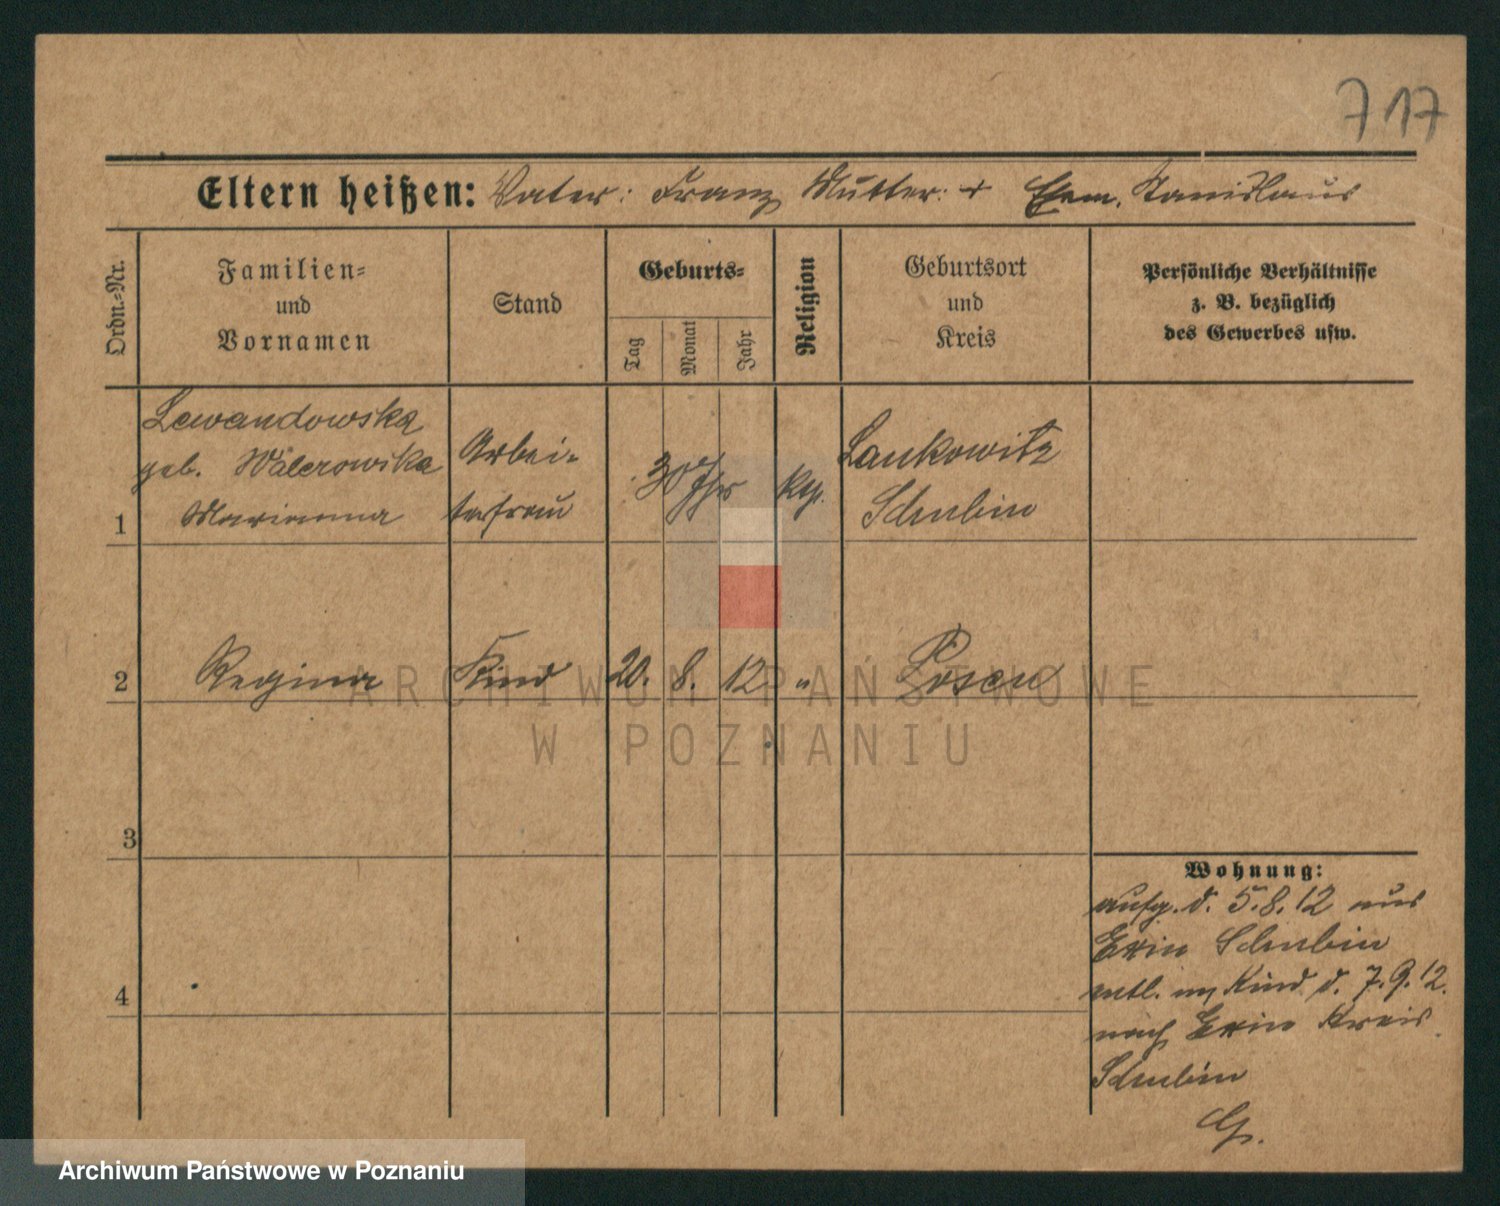 717
Eltern heißen: Vater: Franz Mutter: + Ehem. Stanislaus
Ordn.-Nr.
Familien-
und
Vornamen
Stand
Geburts-
Tag
Monat
Jahr
Religion
Geburtsort
und
Kreis
Persönliche Verhältnisse
z. B. bezüglich
des Gewerbes usw.
1
Lewandowska
geb. Walerowska
Marianna
Arbei-
terfrau
30 Jhr
kth.
Lankowitz
Schubin
2
Regina
Kind
20. 8. 12
"
Posen
3
4
Wohnung:
aufg. d. 5.8.12 aus
Exin Schubin
entl. m. Kind d. 7.9.12.
nach Exin Kreis
Schubin
G.
ARCHIWUM PAŃSTWOWE
W POZNANIU
Archiwum Państwowe w Poznaniu